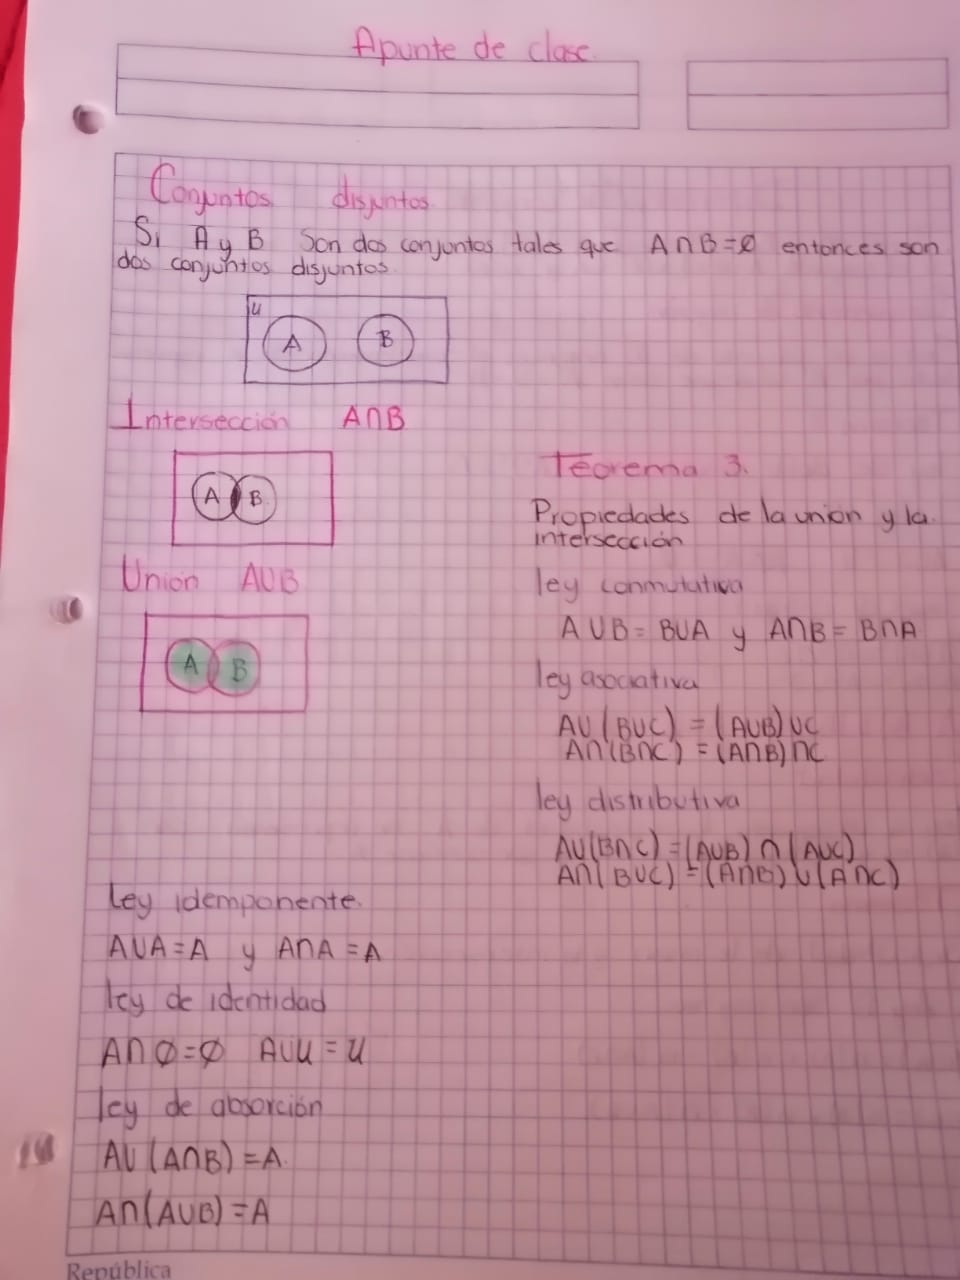 Apunte de clase.
Conjuntos disjuntos
Si A y B Son dos conjuntos tales que A∩B=Ø entonces son
dos conjuntos disjuntos
U
A B
Intersección A∩B
A B
Unión AUB
A B
Teorema 3.
Propiedades de la union y la
intersección
ley conmutativa
AUB = BUA y A∩B = B∩A
ley asociativa
AU(BUC) = (AUB)UC
A∩(B∩C) = (A∩B)∩C
ley distributiva
AU(B∩C) = (AUB)∩(AUC)
A∩(BUC) = (A∩B)U(A∩C)
Ley idemponente.
AUA=A y A∩A=A
ley de identidad
A∩Ø=Ø AUU=U
ley de absorción
AU(A∩B)=A.
A∩(AUB)=A
República